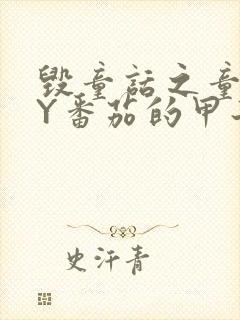 毁童话之童
Y番茄的甲
史汗青